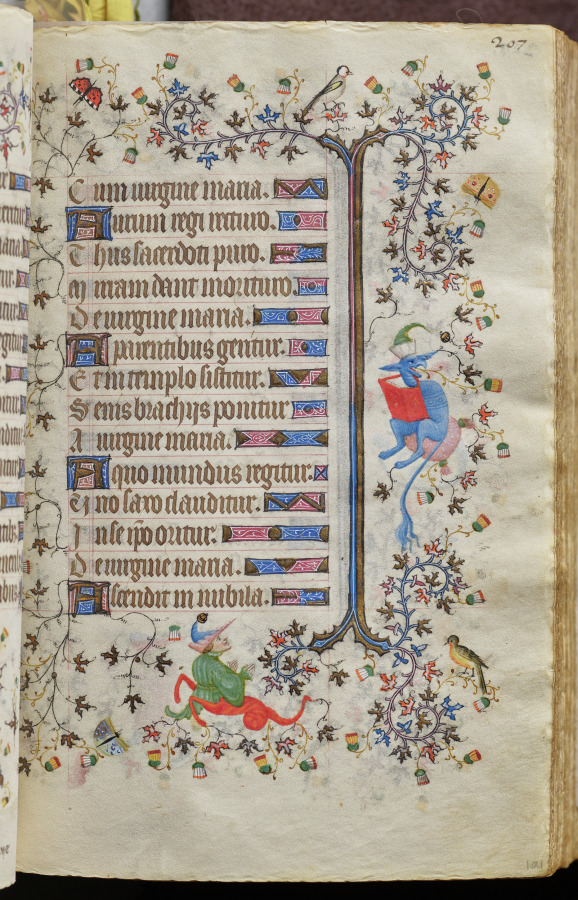 207
Cum uirgine maria.
Aurum regi regum.
Thus sacerdoti puro.
mirram dant morituro.
De uirgine maria.
A parentibus gentur.
Et in templo sistitur.
Senis brachijs ponitur
A uirgine maria.
A quo mundus regitur.
In se ipo oritur.
De uirgine maria.
Ascendit in nubila.